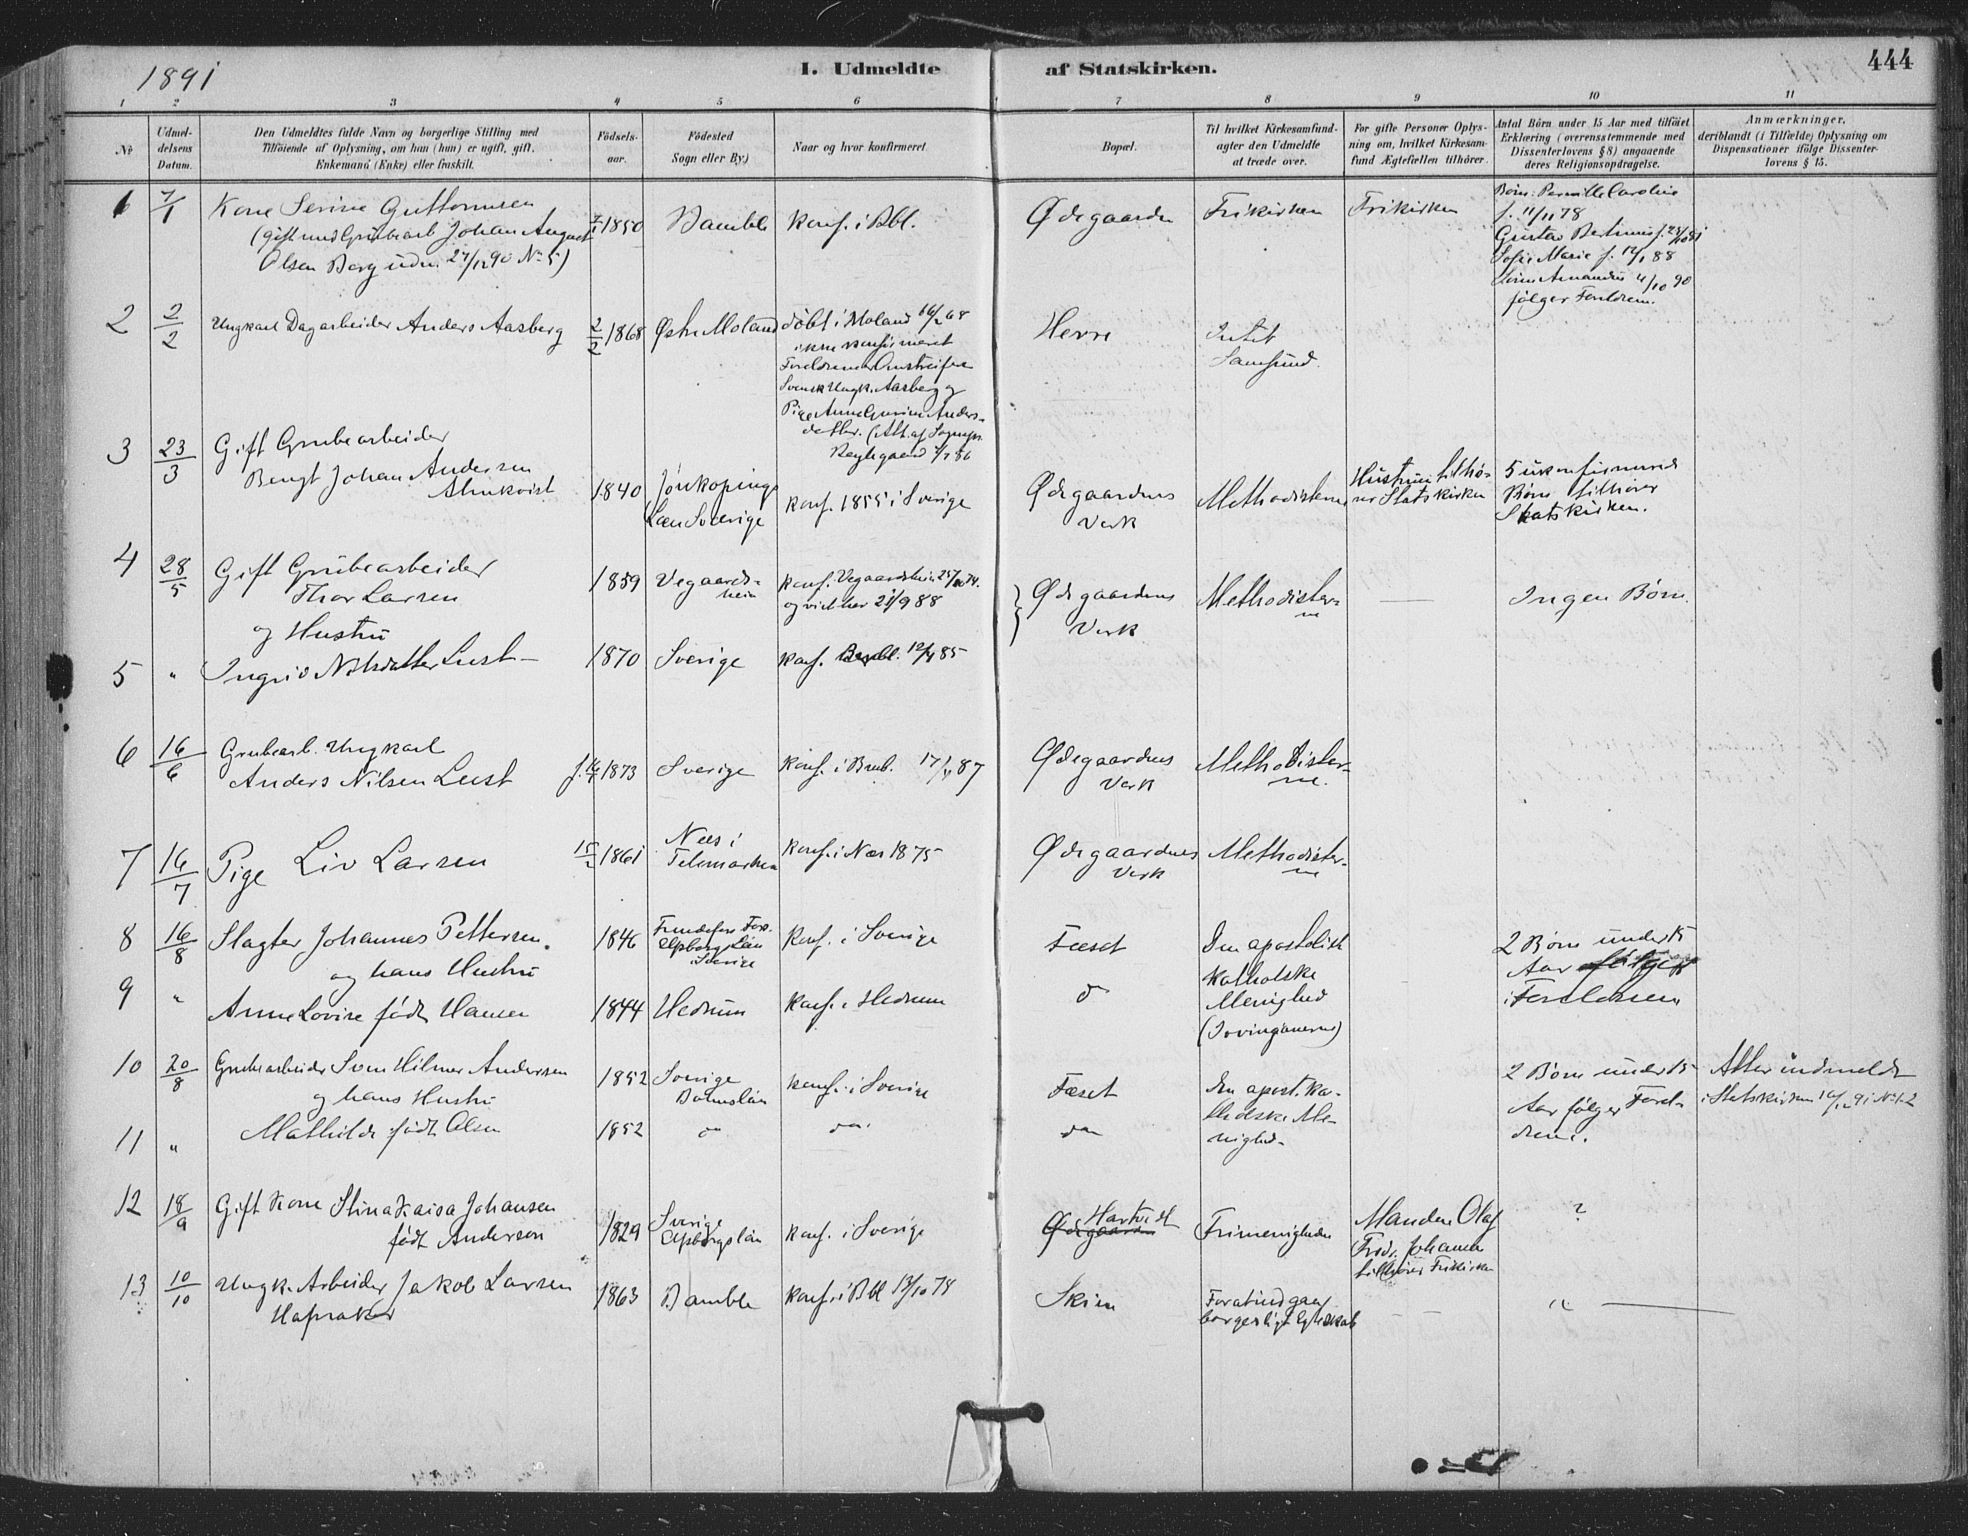 1891
I. Udmeldte af Statskirken.
444
1 2 3 4 5 6 7 8 9 10 11
No
Udmel-
delsens
Datum.
Den Udmeldtes fulde Navn og borgerlige Stilling med
Tilføiende af Oplysning, om han (hun) er ugift, gift,
Enkemand (Enke) eller fraskilt.
Fødsels-
aar.
Fødested
Sogn eller By)
Naar og hvor konfirmeret
Bopæl.
Til hvilket Kirkesamfund-
agter den Udmeldte
at træde over.
For gifte Personer Oplys-
ning om, hvilket Kirkesam-
fund Ægtefællen tilhører.
Antal Børn under 15 Aar med tilføiet
Erklæring (overensstemmende med
Dissenterlovens § 8) angaaende
deres Religionsopdragelse.
Anmærkninger,
deriblandt (i Tilfælde) Oplysning om
Dispensationer ifølge Dissenter-
lovens § 15.
1 7/1 Kone Serine Guttormsen
(gift med Grubearb Johan August
Olsen Berg udm. 27/12 90 No 5)
1850 Bamble Konf. i Bbl.
Ødegaarden Frikirken Frikirken
Børn: Pernille Caroline
f. 11/11 78
Gustav Bertinius f.
Sofie Marie f. 12/1 88
Amandus 4/10 90
følger Forældrene.
2 2/2 Ungkarl Dagarbeider Anders Aasberg 2/2 1868 Østre Moland
døbt i Moland 68
ikke konfirmeret
Forældrene Omstreifer
Svensk Ungk. Aasberg og
Pige Anne Gurine Anders-
datter. (Att. af Sognepr.
Herre Intet
Samfund.
3 23/3 Gift Grubearbeider
Bengt Johan Andersen
Almkvist
1840 Jönkøpings
Læn Sverige
konf. 1855 i Sverige
Ødegaardens
Verk
Methodisterne
Hustruen tilhø-
rer Statskirken
5 ukonfirmerede
Børn tilhører
Statskirken.
4 28/5 Gift Grubearbeider
Thor Larsen
og Hustru
1859 Vegaards-
heien
konf. Vegaardshei
og viet her 21/9 88
Ødegaardens
Verk
Methodister-
ne
Ingen Børn.
5 " Ingrid Nilsdatter Lust 1870 Sverige konf. Bbl. 12/4 85
6 16/6 Grubearb. Ungkarl
Anders Nilsen Lust
1873 Sverige Konf. i Bmb. 17/4 87
Ødegaardens
Verk
Methodister-
ne.
7 16/7 Pige Liv Larsen 1861 Næs i
Telemarken
Konf. i Næs 1875
Ødegaardens
Verk
Methodister-
ne
8 16/8 Slagter Johannes Pettersen.
og hans Hustru
1846 Fors.
Elfsborgs Län
Sverige
Konf. i Sverige
Fæset
Den apostolisk
katholske
Menighed
(Irvingianerne)
2 Børn under 15
Aar følger
Forældrene
9 " Anne Lovise født Hansen 1844 Hedrum Konf. i Hedrum do
10 20/8 Grubearbeider Sven Hilmer Andersen
og hans Hustru
1852 Sverige
Konf. i Sverige
Fæset
den apost. ka-
tholske Me-
nighed.
2 Børn under 15
Aar følger Foræl-
drene.
Atter indmeldt
i Statskirken 16/12 91 No 1-2
11 " Mathilde født Olsen 1852 do do. do
12 18/9 Gift Kone Stina Kaisa Johansen
født Anderson
1829 Sverige
Elfsborgslän
Konf. i Sverige
Hartvedt
Ødegaarden
Frimenigheden
Manden Olaf
Fredr. Johansen
tilhører Frikirken
?
13 10/10 Ungk. Arbeider Jakob Larsen
1863 Bamble Konf. i Bbl 13/10 78
Foratindgaa
borgerligt Egteskab
"